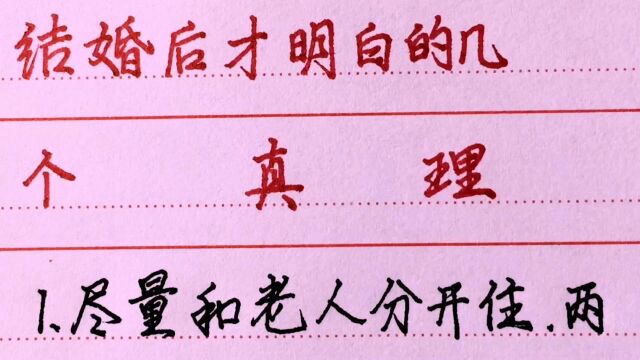 结婚后才明白的几
个 真 理
1.尽量和老人分开住.两